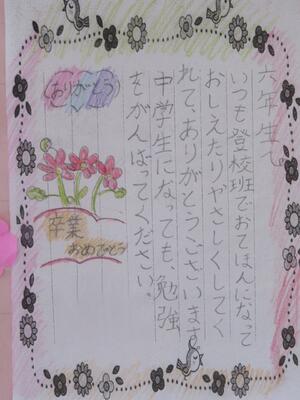 六年生へ
いつも登校班でおてほんになって
おしえたりやさしくしてく
れて、ありがとうございます。
中学生になっても、勉強
をがんばってください。
ありがとう
卒業
おめでとう